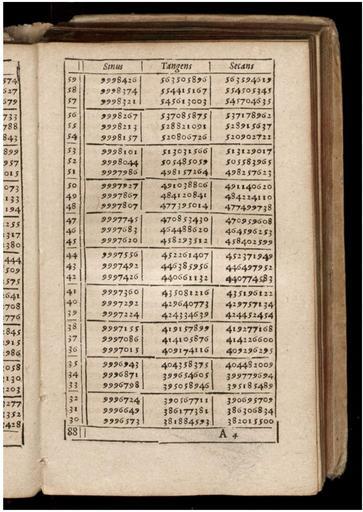 Sinus Tangens Secans
59 9998426 563505896 563594619
58 9998374 554415167 554505345
57 9998321 545613003 545704635
56 9998267 537085875 537178962
55 9998213 528821091 528915637
54 9998157 520806726 520902722
53 9998101 513031566 513129017
52 9998044 505485059 505583965
51 9997986 498157264 498257623
50 9997927 491038806 491140620
49 9997867 484120841 484224110
48 9997807 477395014 477499738
47 9997745 470853430 470959608
46 9997683 464488620 464596253
45 9997620 458293512 458402599
44 9997556 452261407 452371949
43 9997492 446385956 446497952
42 9997426 440661132 440774583
41 9997360 435081216 435196122
40 9997292 429640773 429757134
39 9997224 424334639 424452454
38 9997155 419157899 419277168
37 9997086 414105876 414226600
36 9997015 409174116 409296295
35 9996943 404358375 404482009
34 9996871 399654605 399779694
33 9996798 395058946 395185489
32 9996724 390567711 390695709
31 9996649 386177381 386306834
30 9996573 381884593 382015500
88 A 4